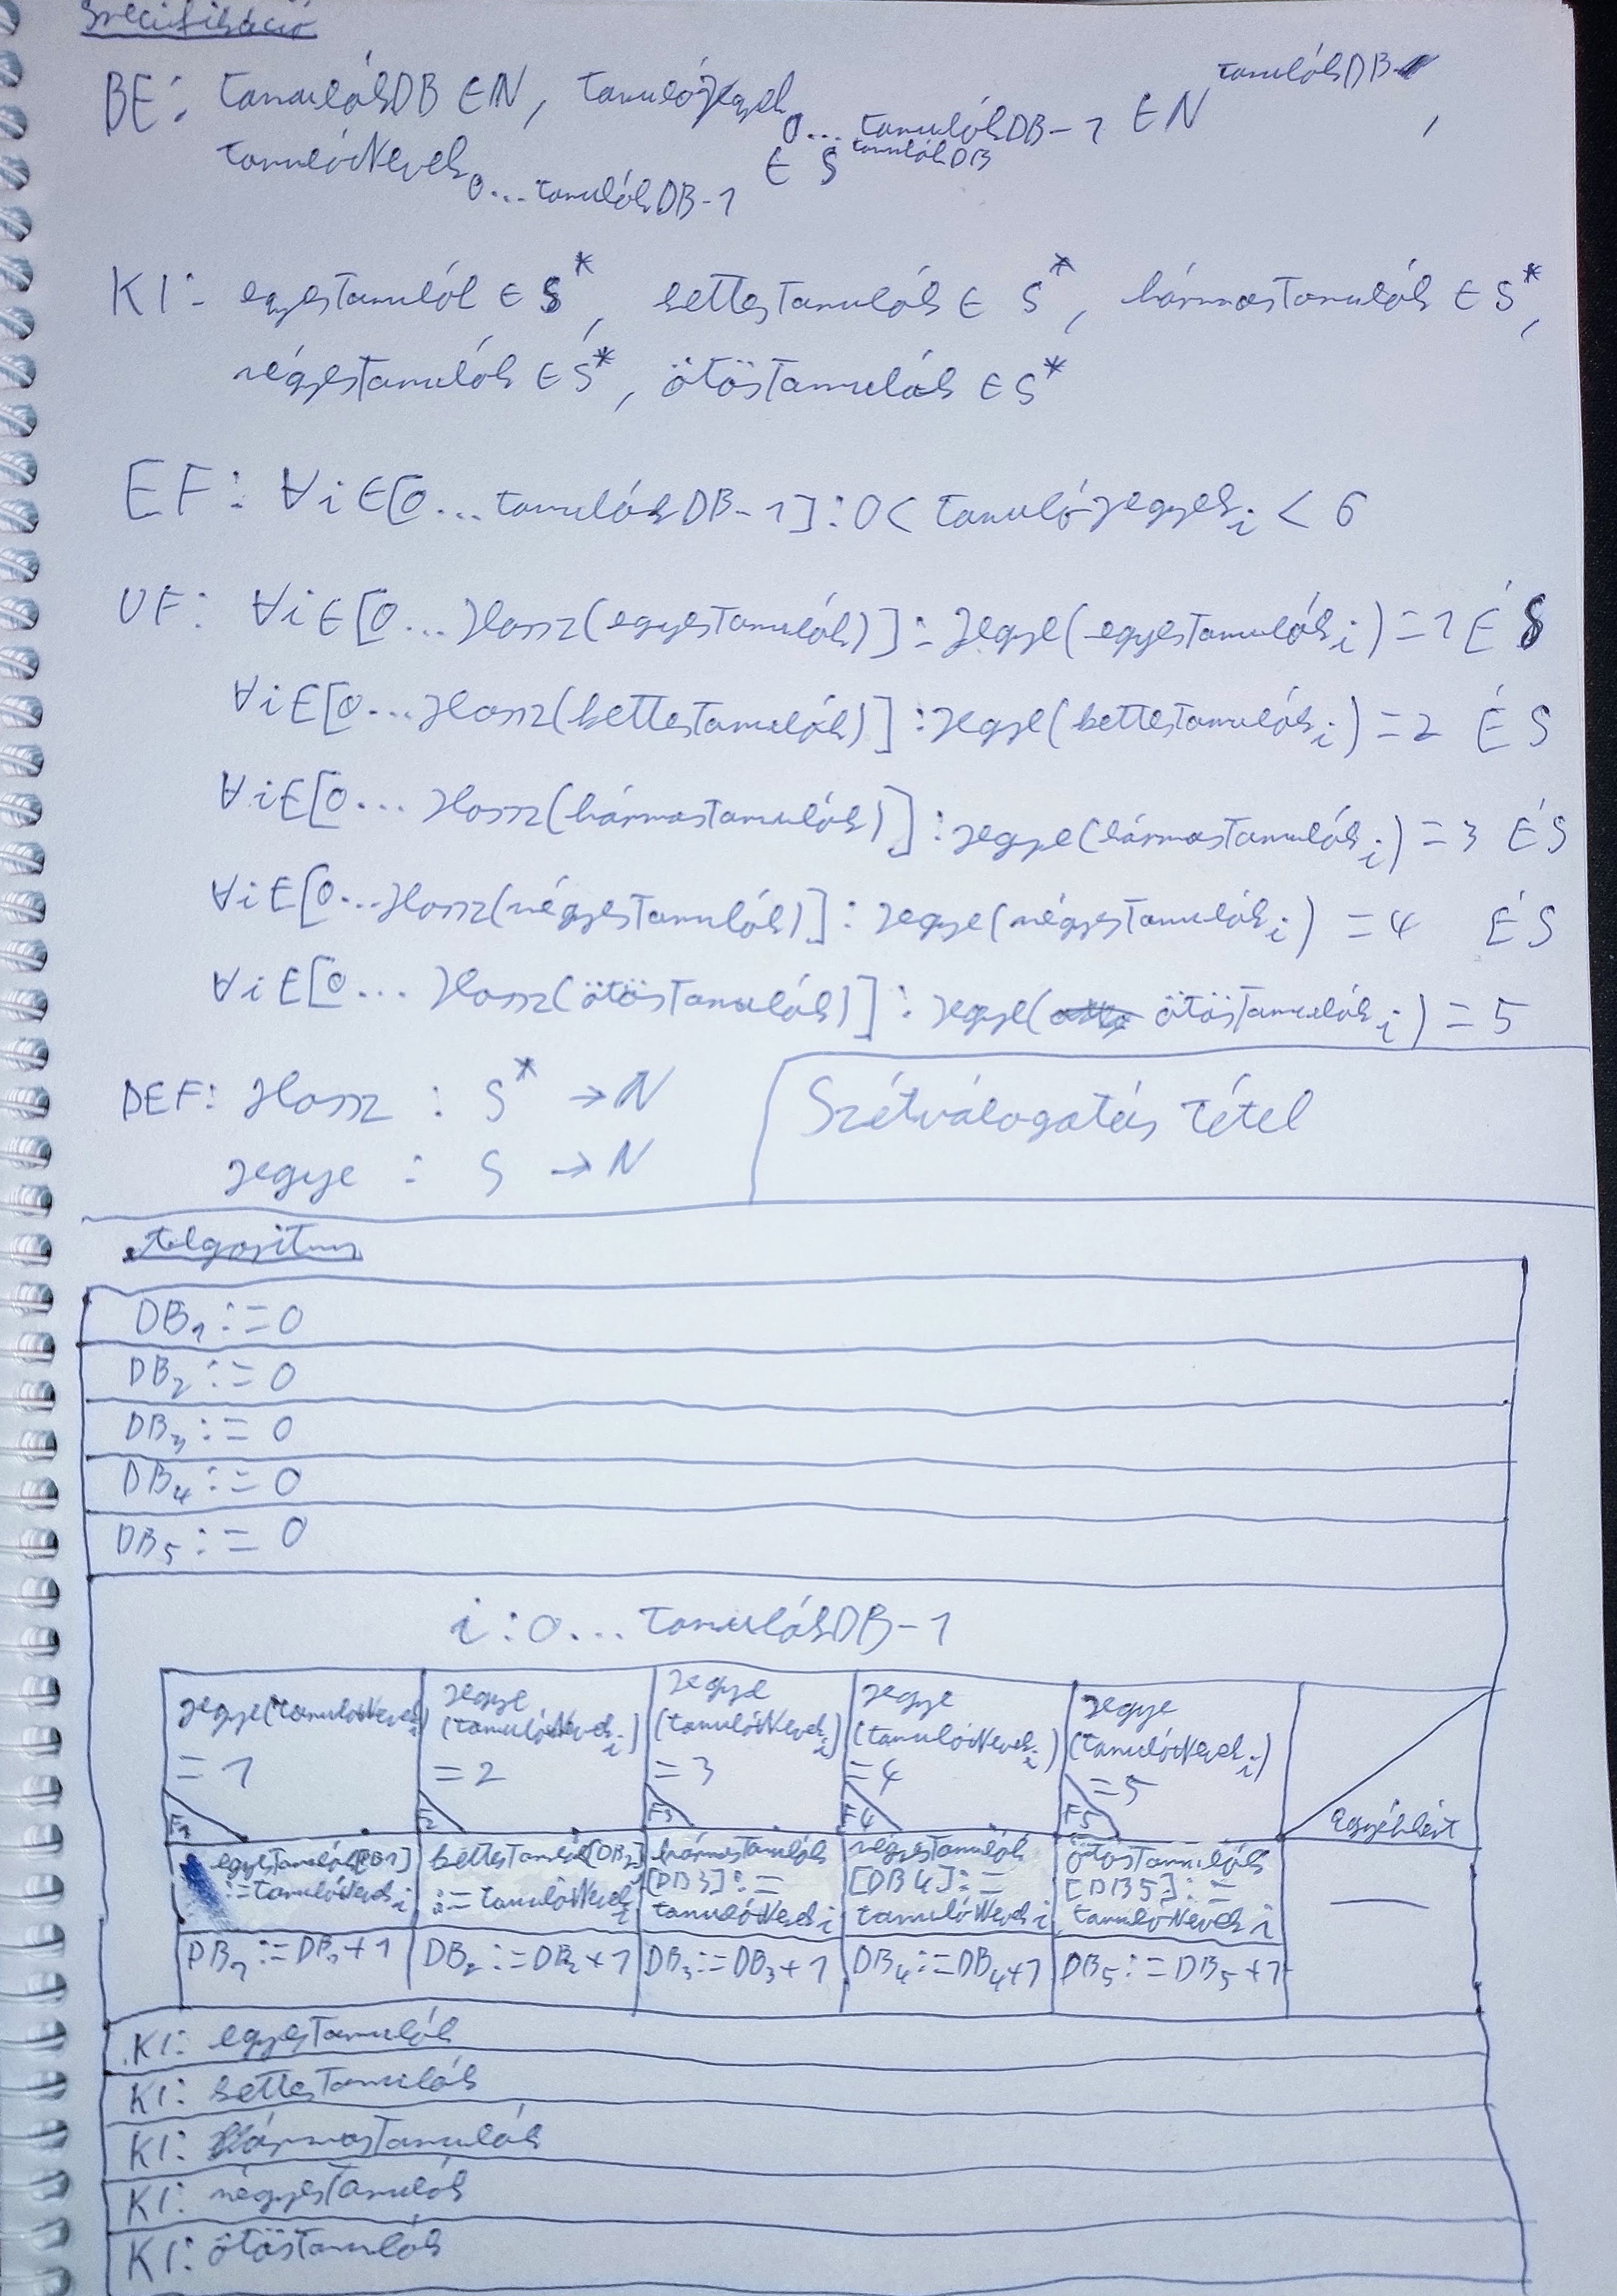 Specifikáció
BE: tanulókDB ∈ N, tanulójegyek 0...tanulókDB-1 ∈ N^tanulókDB,
tanulóNevek 0...tanulókDB-1 ∈ S^tanulókDB
KI: egyestanulók ∈ S*, kettestanulók ∈ S*, hármastanulók ∈ S*,
négyestanulók ∈ S*, ötöstanulók ∈ S*
EF: ∀i∈[0...tanulókDB-1]: 0 < tanulójegyek i < 6
UF: ∀i∈[0...Hossz(egyestanulók)]: jegye(egyestanulók i) = 1 ÉS
∀i∈[0...Hossz(kettestanulók)]: jegye(kettestanulók i) = 2 ÉS
∀i∈[0...Hossz(hármastanulók)]: jegye(hármastanulók i) = 3 ÉS
∀i∈[0...Hossz(négyestanulók)]: jegye(négyestanulók i) = 4 ÉS
∀i∈[0...Hossz(ötöstanulók)]: jegye(ötöstanulók i) = 5
DEF: Hossz : S* → N
jegye : S → N
Szétválogatás tétel
Algoritmus
DB1 := 0
DB2 := 0
DB3 := 0
DB4 := 0
DB5 := 0
i: 0...tanulókDB-1
jegye(tanulóNevek i) = 1
jegye (tanulóNevek i) = 2
jegye (tanulóNevek i) = 3
jegye (tanulóNevek i) = 4
jegye (tanulóNevek i) = 5
F1 F2 F3 F4 F5 Egyébként
egyestanulók[DB1] := tanulóNevek i
kettestanulók[DB2] := tanulóNevek i
hármastanulók [DB3] := tanulóNevek i
négyestanulók [DB4] := tanulóNevek i
ötöstanulók [DB5] := tanulóNevek i
—
DB1 := DB1+1
DB2 := DB2+1
DB3 := DB3+1
DB4 := DB4+1
DB5 := DB5+1
KI: egyestanulók
KI: kettestanulók
KI: hármastanulók
KI: négyestanulók
KI: ötöstanulók